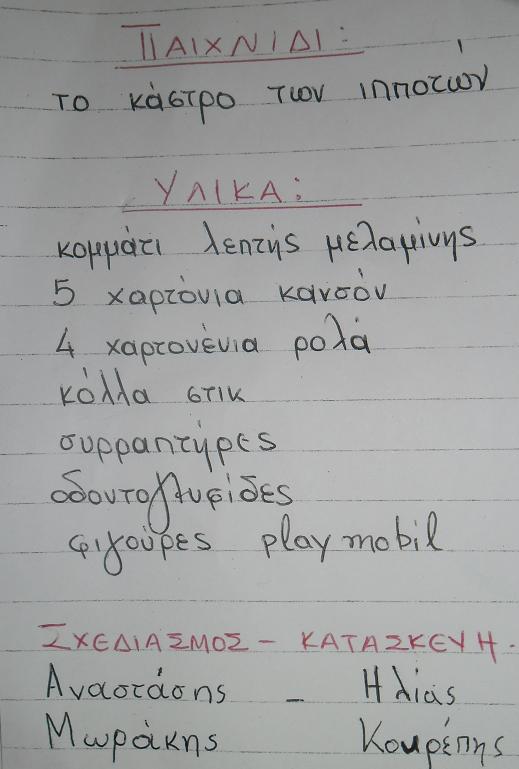 ΠΑΙΧΝΙΔΙ:
το κάστρο των ιπποτών
ΥΛΙΚΑ:
κομμάτι λεπτής μελαμίνης
5 χαρτόνια κανσόν
4 χαρτονένια ρολά
κόλλα στικ
συρραπτήρες
οδοντογλυφίδες
φιγούρες play mobil
ΣΧΕΔΙΑΣΜΟΣ - ΚΑΤΑΣΚΕΥΗ.
Αναστάσης - Ηλίας
Μωράκης Κουρέπης